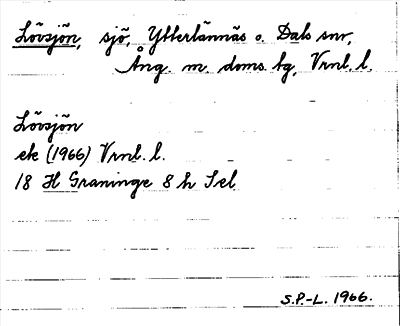 Lövsjön, sjö, Ytterlännäs o. Dals snr,
Ång. m. doms. tg, Vrnl. l.
Lövsjön
ek (1966) Vrnl. l.
18 H Graninge 8 h Sel
S.P.-L. 1966.